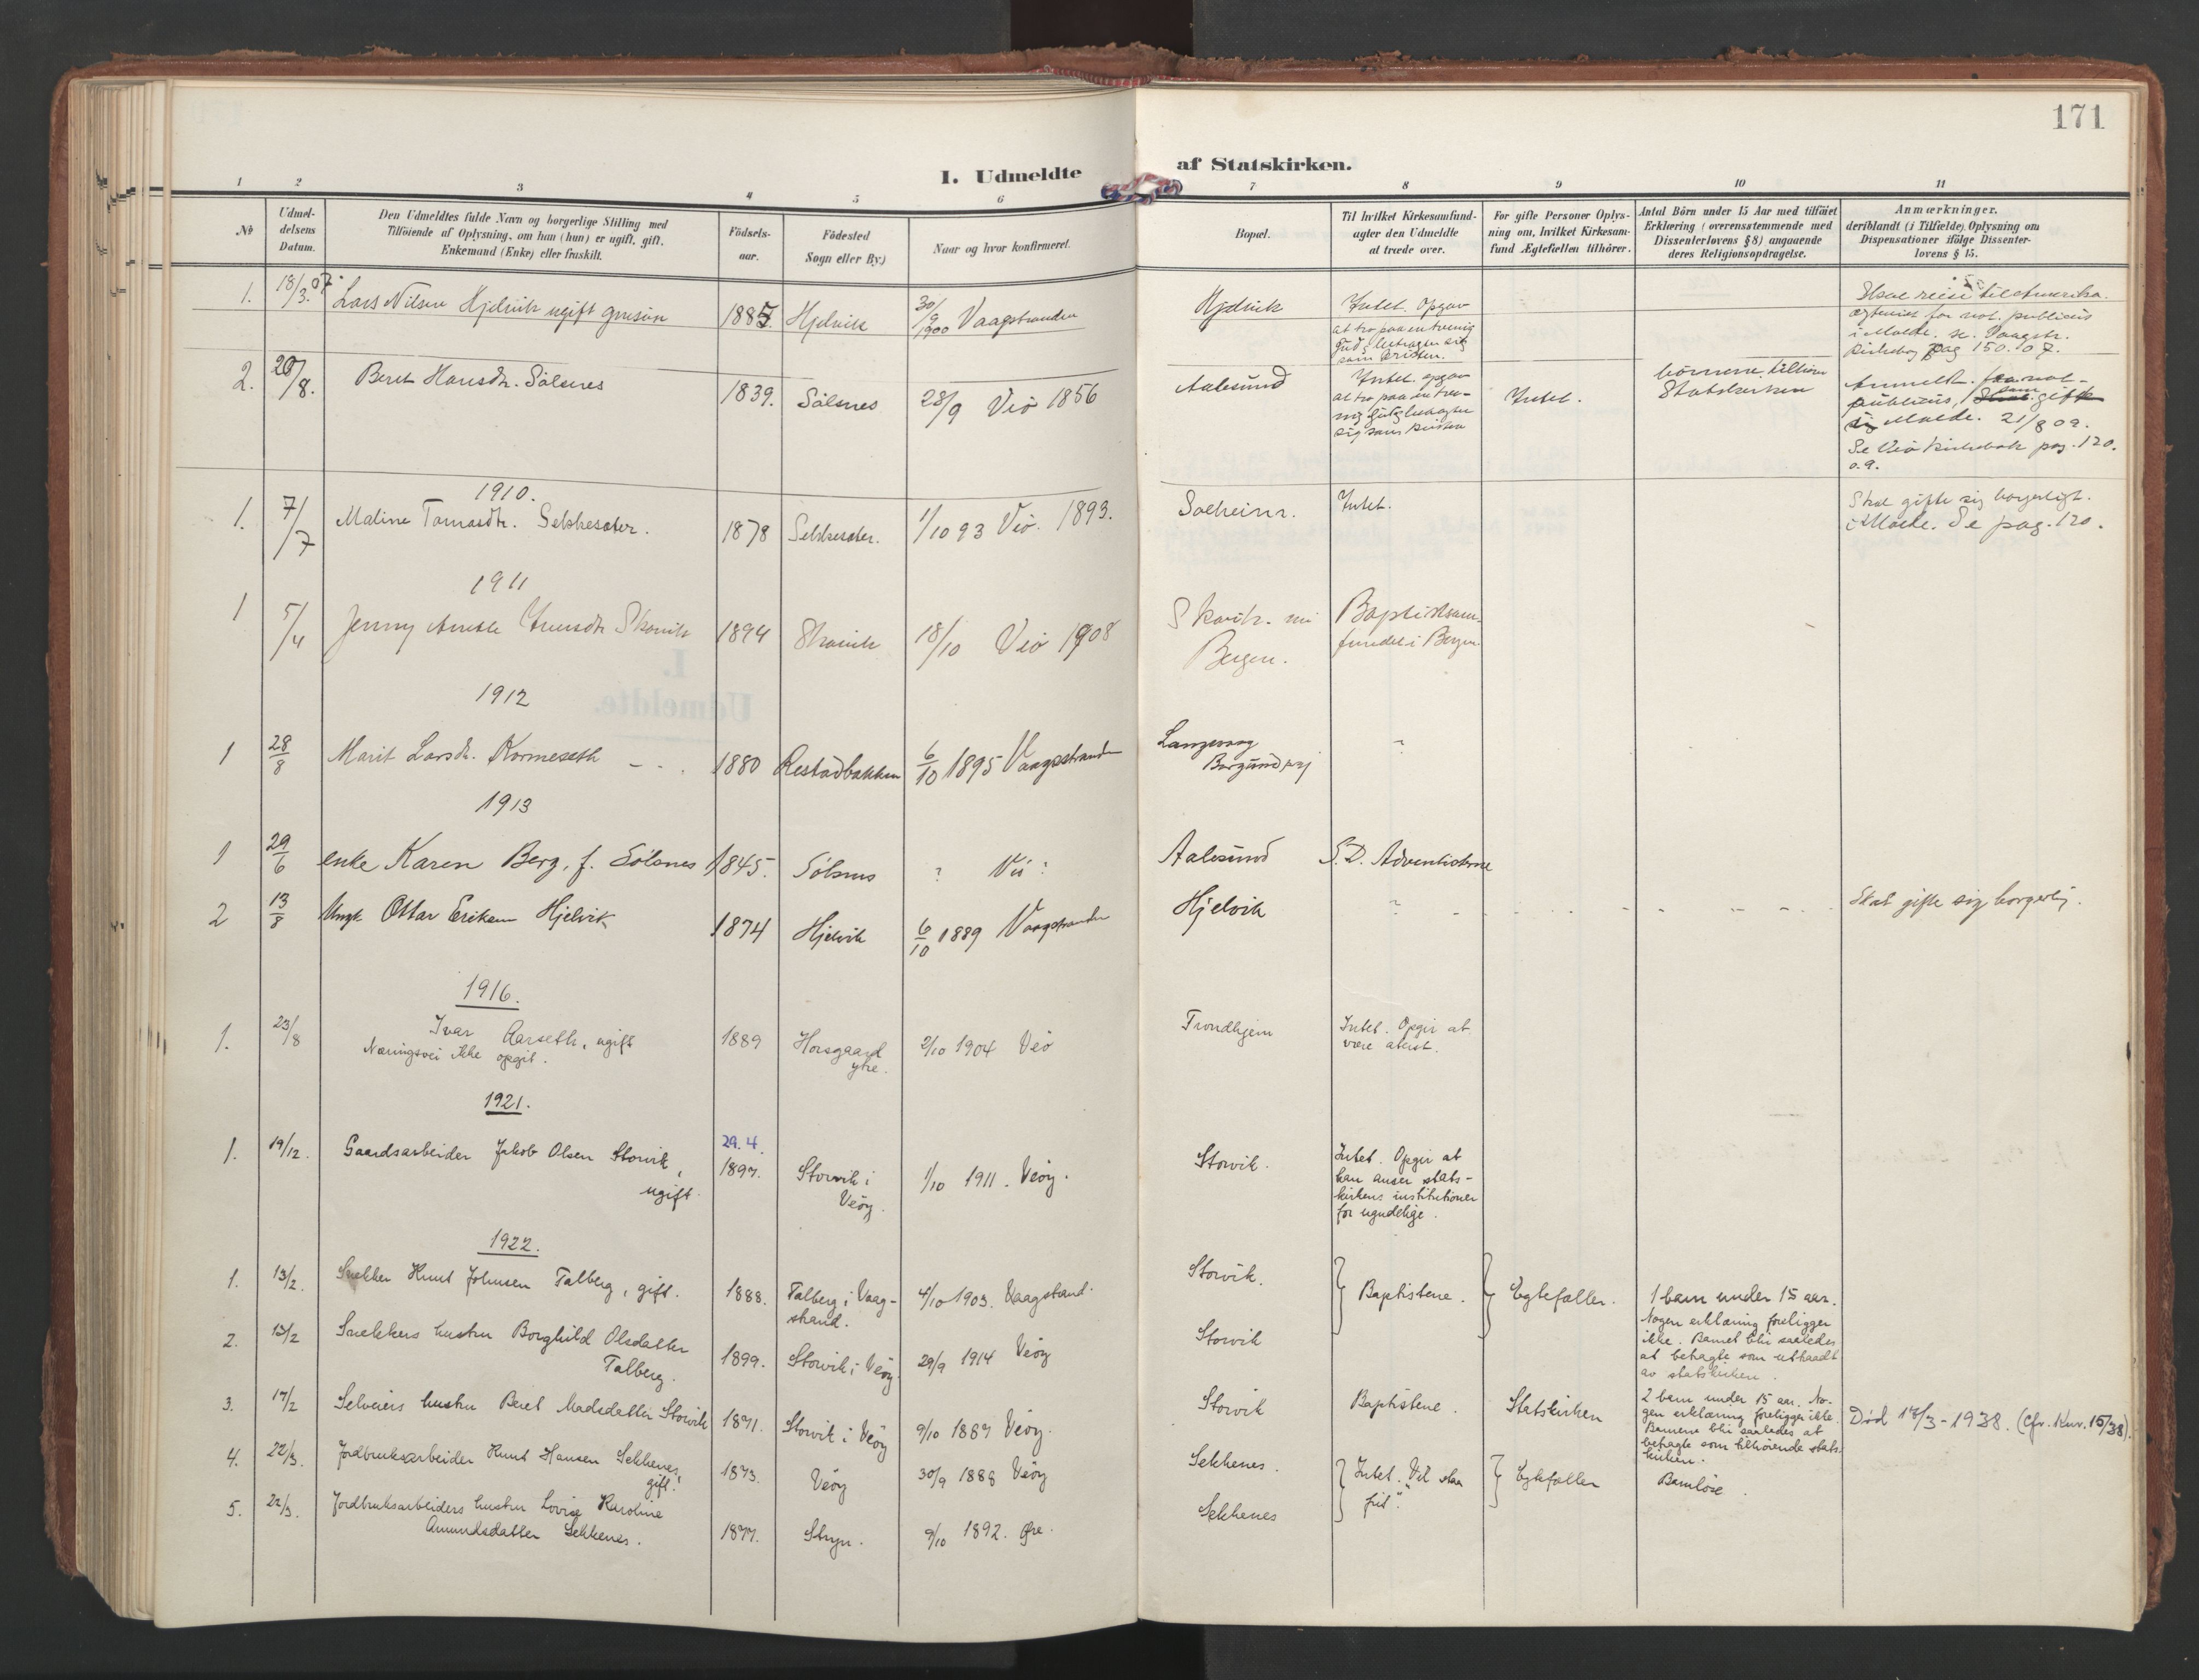 171
I. Udmeldte af Statskirken.
1 2 3 4 5 6 7 8 9 10 11
No
Udmel-
delsens
Datum.
Den Udmeldtes fulde Navn og borgerlige Stilling med
Tilføiende af Oplysning, om han (hun) er ugift, gift,
Enkemand (Enke) eller fraskilt.
Fødsels-
aar.
Fødested
Sogn eller By.)
Naar og hvor konfirmeret.
Bopæl.
Til hvilket Kirkesamfund-
agter den Udmeldte
at træde over.
For gifte Personer Oplys-
ning om, hvilket Kirkesam-
fund Ægtefællen tilhører.
Antal Børn under 15 Aar med tilføiet
Erklæring (overensstemmende med
Dissenterlovens § 8) angaaende
deres Religionsopdragelse.
Anmærkninger,
deriblandt (i Tilfælde) Oplysning om
Dispensationer ifølge Dissenter-
lovens § 15.
1. 18/3. 07 Lars Nilsen Hjelvik ugift 1885 Hjelvik 30/9 1900 Vaagstranden
Hjelvik
Intet. Opgav
at tro paa en treenig
Gud, betragter sig
som kristen.
Skal reise til Amerika.
for not. publicus
i Molde. se. Vaagstr.
kirkebog pag 150. 07.
2. 20/8. Beret Hansdr. Sølsnes 1839. Sølsnes 28/9 Veø 1856
Aalesund
Intet. opgav
at tro paa en tree-
nig Gud, betragter
sig som kristen
Intet.
børnene tilhører
Statskirken
Anmeldt. for not-
publicus, som gifte
sig Molde. 21/8 09.
Se Veø kirkebok pag. 120.
09.
1910.
1. 7/7 Maline Tomasdtr. Sekkesæter. 1878 Sekkesæter. 1/10 93 Veø. 1893.
Solheim. Intet.
Skal gifte sig borgerligt.
i Molde. Se pag. 120.
1911
1 5/4 Jenny Skorvik 1894 Skorvik 18/10 Veø 1908
Skorvik. nu
Bergen.
Baptistsam-
fundet i Bergen.
1912
1 28/8 Marit Larsdr. Kormeseth - - . 1880 Restadbakken 6/10 1895 Vaagstranden
Langevaag
Borgund prgj
?
1913
1 29/6 enke Karen Berg, f. Sølsnes 1845. Sølsnes ? Veø ?
Aalesund S. D. Adventisterne
2 13/8 Ungk. Ottar Eriksen Hjelvik 1874 Hjelvik 6/10 1889 Vaagstranden
Hjelvik ? Skal gifte sig borgerlig.
1916.
1. 23/8 Ivar Aarseth, ugift
Næringsvei ikke opgit.
1889 Horsgaard
ytre.
2/10 1904 Veø
Trondhjem
Intet. Opgir at
være ateist.
1921.
1. 19/12. Gaardsarbeider Jakob Olsen Storvik,
ugift.
29.4.
1897. Storvik i
Veøy.
1/10 1911. Veøy.
Storvik.
Intet. Opgir at
han anser stats-
kirkens institutioner
for ugudelige.
1922.
1. 13/2. Snekker Knut Johnsen Talberg, gift. 1888. Talberg i Vaag-
strand.
4/10 1903. Vaagstrand.
Storvik.
Baptistene. Egtefæller.
1 barn under 15 aar.
Nogen erklæring foreligger
ikke. Barnet blir saaledes
at betragte som uttraadt
av statskirken.
2. 13/2 Snekkers hustru Borghild Olsdatter
Talberg.
1899. Storvik i Veøy. 29/9 1914 Veøy
Storvik
3. 17/2 Selveiers hustru Beret Madsdatter Storvik 1871. Storvik i Veøy 9/10 1887 Veøy.
Storvik Baptistene. Statskirken
2 barn under 15 aar. No-
gen erklæring foreligger ikke.
Barnene blir saaledes at
betragte som tilhørende stats-
kirken.
Død 17/3 - 1938. (cfr. Kur. 15/38).
4. 22/3. Jordbruksarbeider Knut Hansen Sekkenes,
gift.
1873. Veøy 30/9 1888 Veøy
Sekkenes.
Intet. Vil staa
frit". Egtefæller Barnløse.
5. 22/3. Jordbruksarbeiders hustru Lovise Karoline
Amundsdatter Sekkenes.
1877. Stryn. 9/10 1892. Øre.
Sekkenes
I.
Udmeldte.